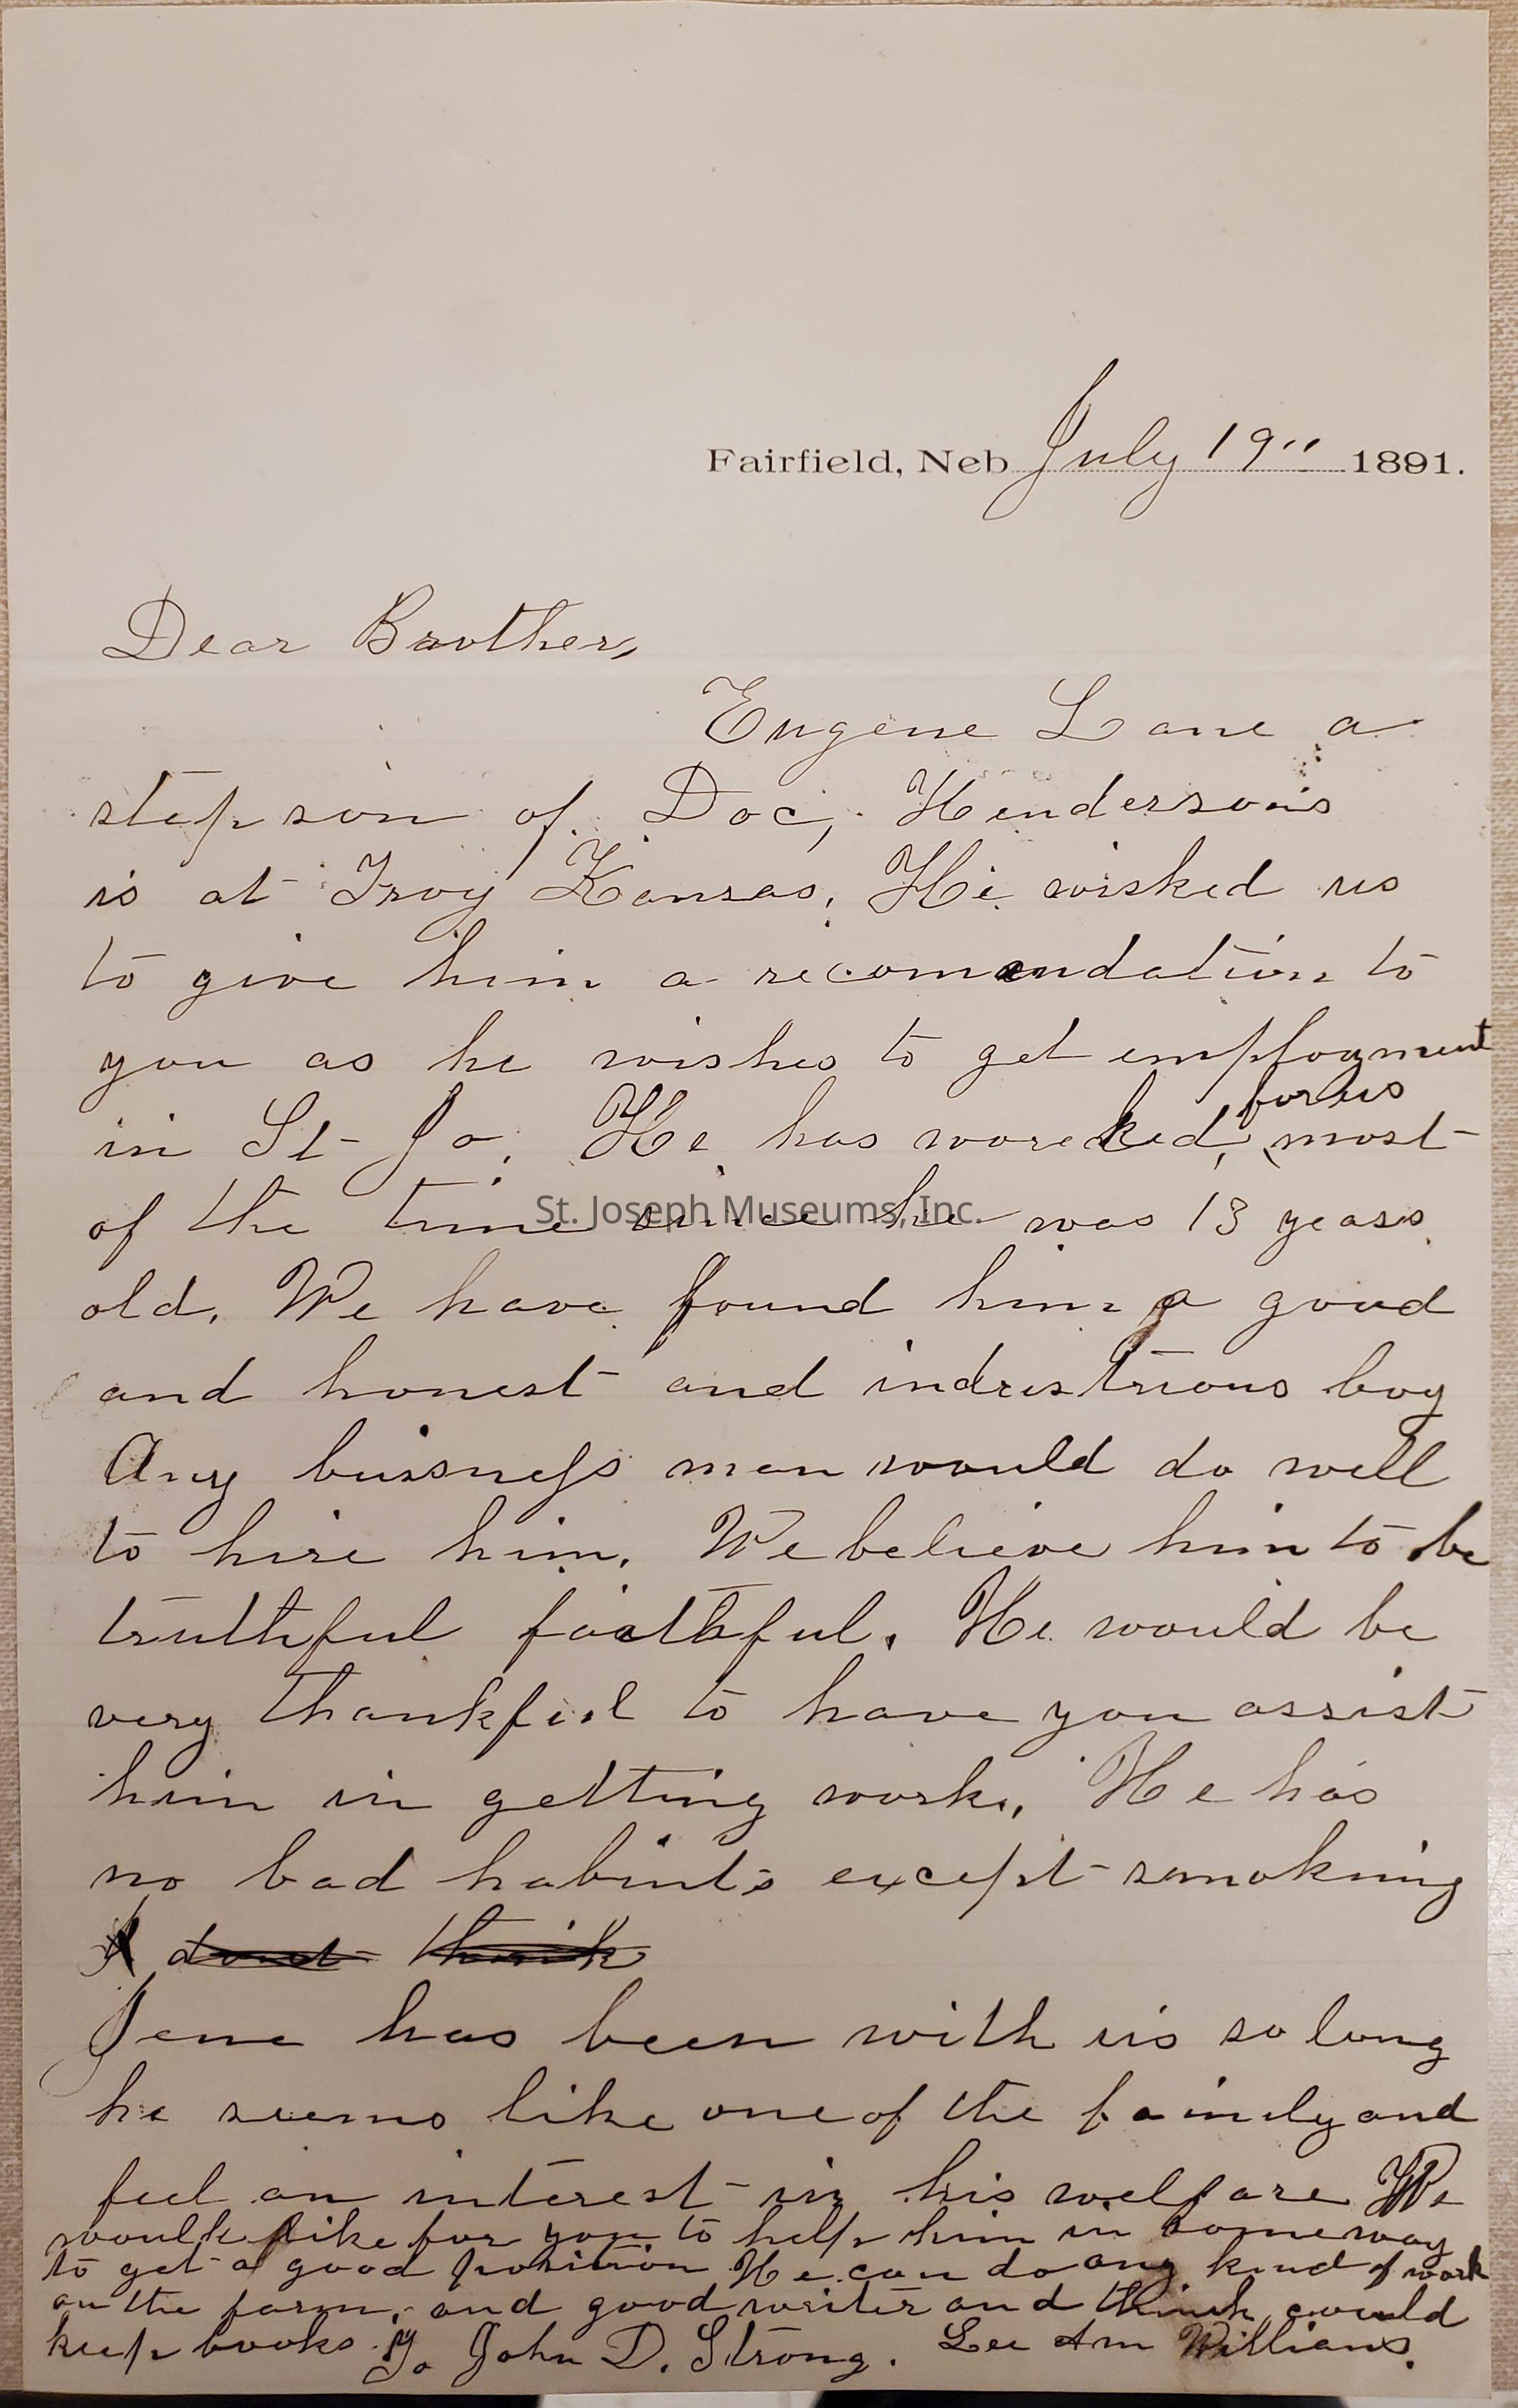 Fairfield, Neb July 19" 1891.
Dear Brother,
Eugene Lane a
step son of Doc, Henderson's
is at Troy Kansas. He wished us
to give him a recomendation to
you as he wishes to get employment
in St Jo. He has worked, for us most
of the time since he was 13 years
old. We have found him a good
and honest and industrious boy
Any bussness man would do well
to hire him. We believe him to be
truthful faithful. He would be
very thankful to have you assist
him in getting work. He has
no bad habints except smoking
I dont think
Jene has been with us so long
he seems like one of the family and
feel an interest in his welfare We
would like for you to help him in someway
to get a good position He can do any kind of work
on the farm, and good writer and think could
keep books. To John D. Strong. Lee Williams.
St. Joseph Museums, Inc.